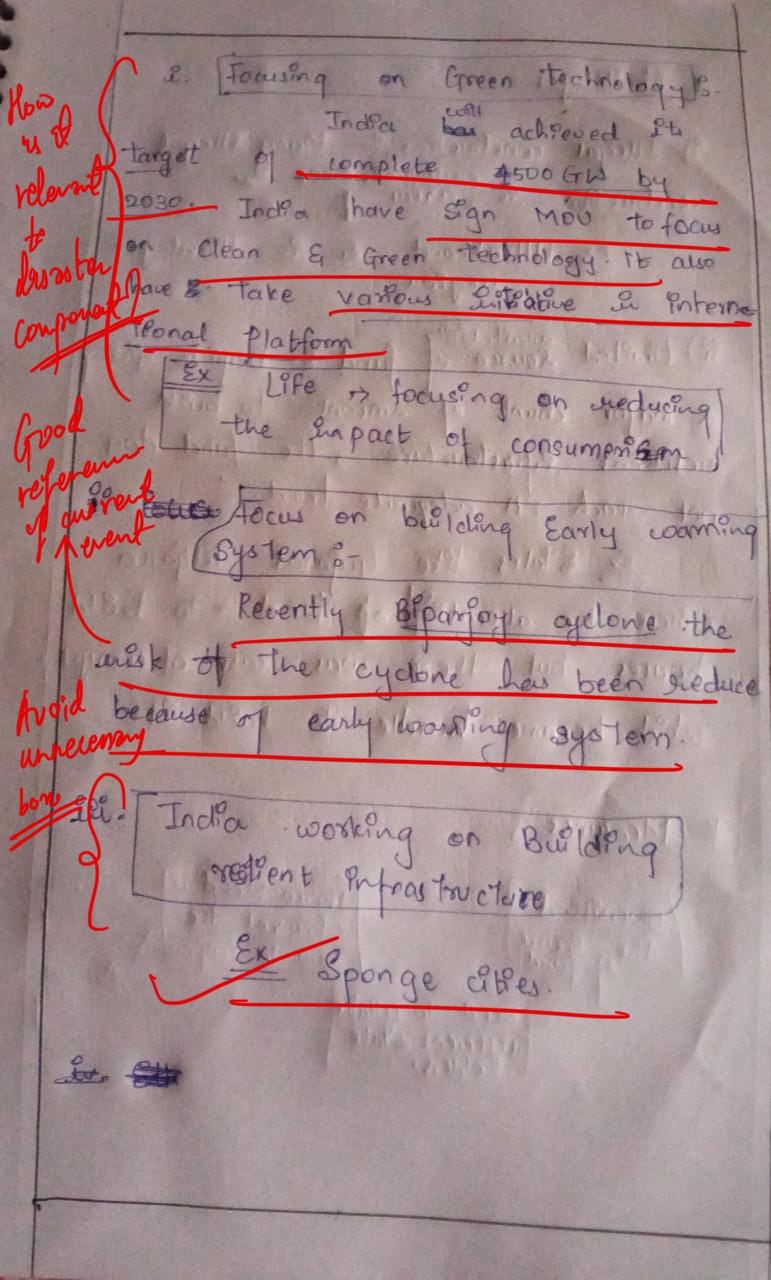 i. Focusing on Green technology:-
India will achieved it
target of complete 4500 GW by
2030. India have sign MOU to focus
on Clean & Green technology. it also
have take various initiative in interna
tional Platform
Ex Life → focusing on reducing
the impact of consumerism
ii. Focus on building Early warning
System :-
Recently Biparjoy cyclone the
risk of the cyclone has been reduce
because of early warning system.
iii. India working on Building
resilient infrastructure
Ex Sponge cities.
iv.
How
is it
relevant
to
disaster
component?
Good
reference
of current
event
Avoid
unnecessary
box